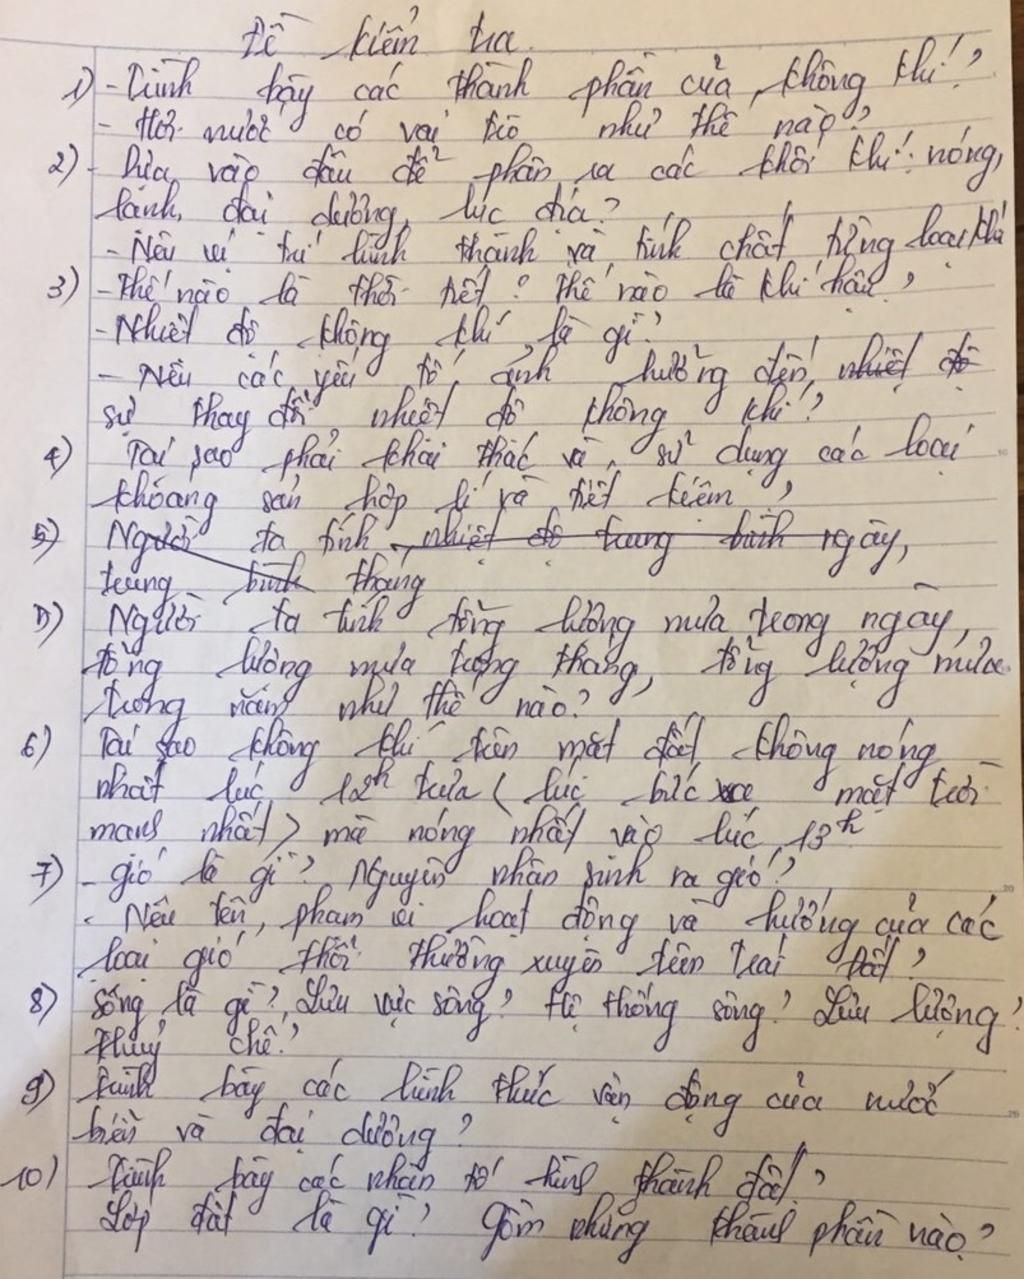 Đề kiểm tra
1) - Trình bày các thành phần của không khí?
- Hơi nước có vai trò như thế nào?
2) - Dựa vào đâu để phân ra các khối khí: nóng,
lạnh, đại dương, lục địa?
- Nêu vị trí hình thành và tính chất từng loại khí
3) - Thế nào là thời tiết? Thế nào là khí hậu?
- Nhiệt độ không khí là gì?
- Nêu các yếu tố ảnh hưởng đến nhiệt độ
sự thay đổi nhiệt độ không khí?
4) Tại sao phải khai thác và sử dụng các loại
khoáng sản hợp lí và tiết kiệm?
5) Người ta tính nhiệt độ trung bình ngày,
trung bình tháng
5) Người ta tính tổng lượng mưa trong ngày,
tổng lượng mưa trong tháng, tổng lượng mưa
trong năm như thế nào?
6) Tại sao không khí trên mặt đất không nóng
nhất lúc 12h trưa (lúc bức xạ mặt trời
mạnh nhất) mà nóng nhất vào lúc 13h
7) - gió là gì? Nguyên nhân sinh ra gió?
- Nêu tên, phạm vi hoạt động và hướng của các
loại gió thổi thường xuyên trên trái đất?
8) Sông là gì? Lưu vực sông? Hệ thống sông? Lưu lượng?
Thuỷ chế?
9) Trình bày các hình thức vận động của nước
biển và đại dương?
10) Trình bày các nhân tố hình thành đất?
Lớp đất là gì? Gồm những thành phần nào?